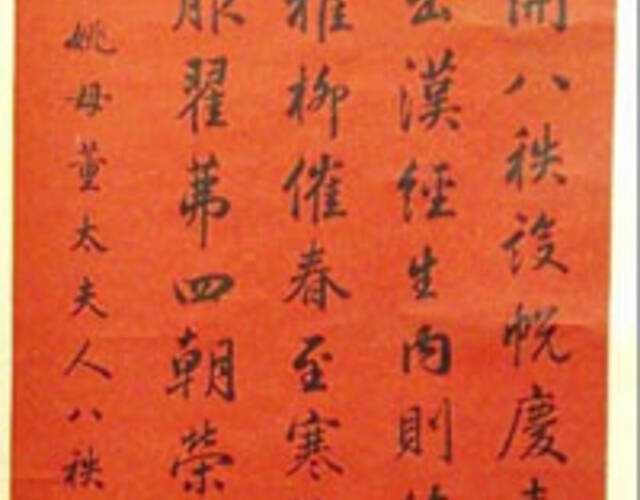 開八秩設帨慶
漢經生內則
雅柳催春至寒
服翟茀四朝榮
姚母董太夫人八秩